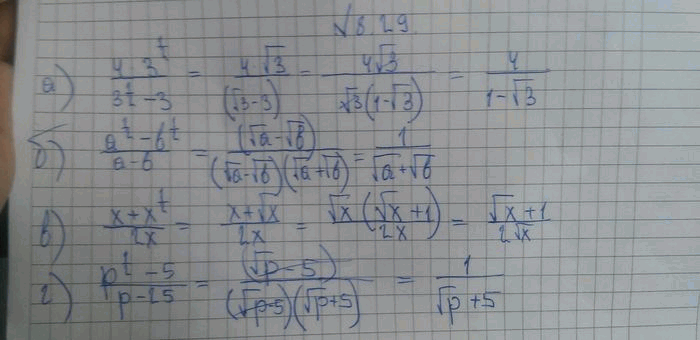 №8.29.
а) (4·3^(1/2))/(3^(1/2)-3) = (4·√3)/(√3-3) = (4√3)/(√3(1-√3)) = 4/(1-√3)
б) (a^(1/2)-b^(1/2))/(a-b) = (√a-√b)/((√a-√b)(√a+√b)) = 1/(√a+√b)
в) (x+x^(1/2))/(2x) = (x+√x)/(2x) = (√x(√x+1))/(2x) = (√x+1)/(2√x)
г) (p^(1/2)-5)/(p-25) = (√p-5)/((√p-5)(√p+5)) = 1/(√p+5)